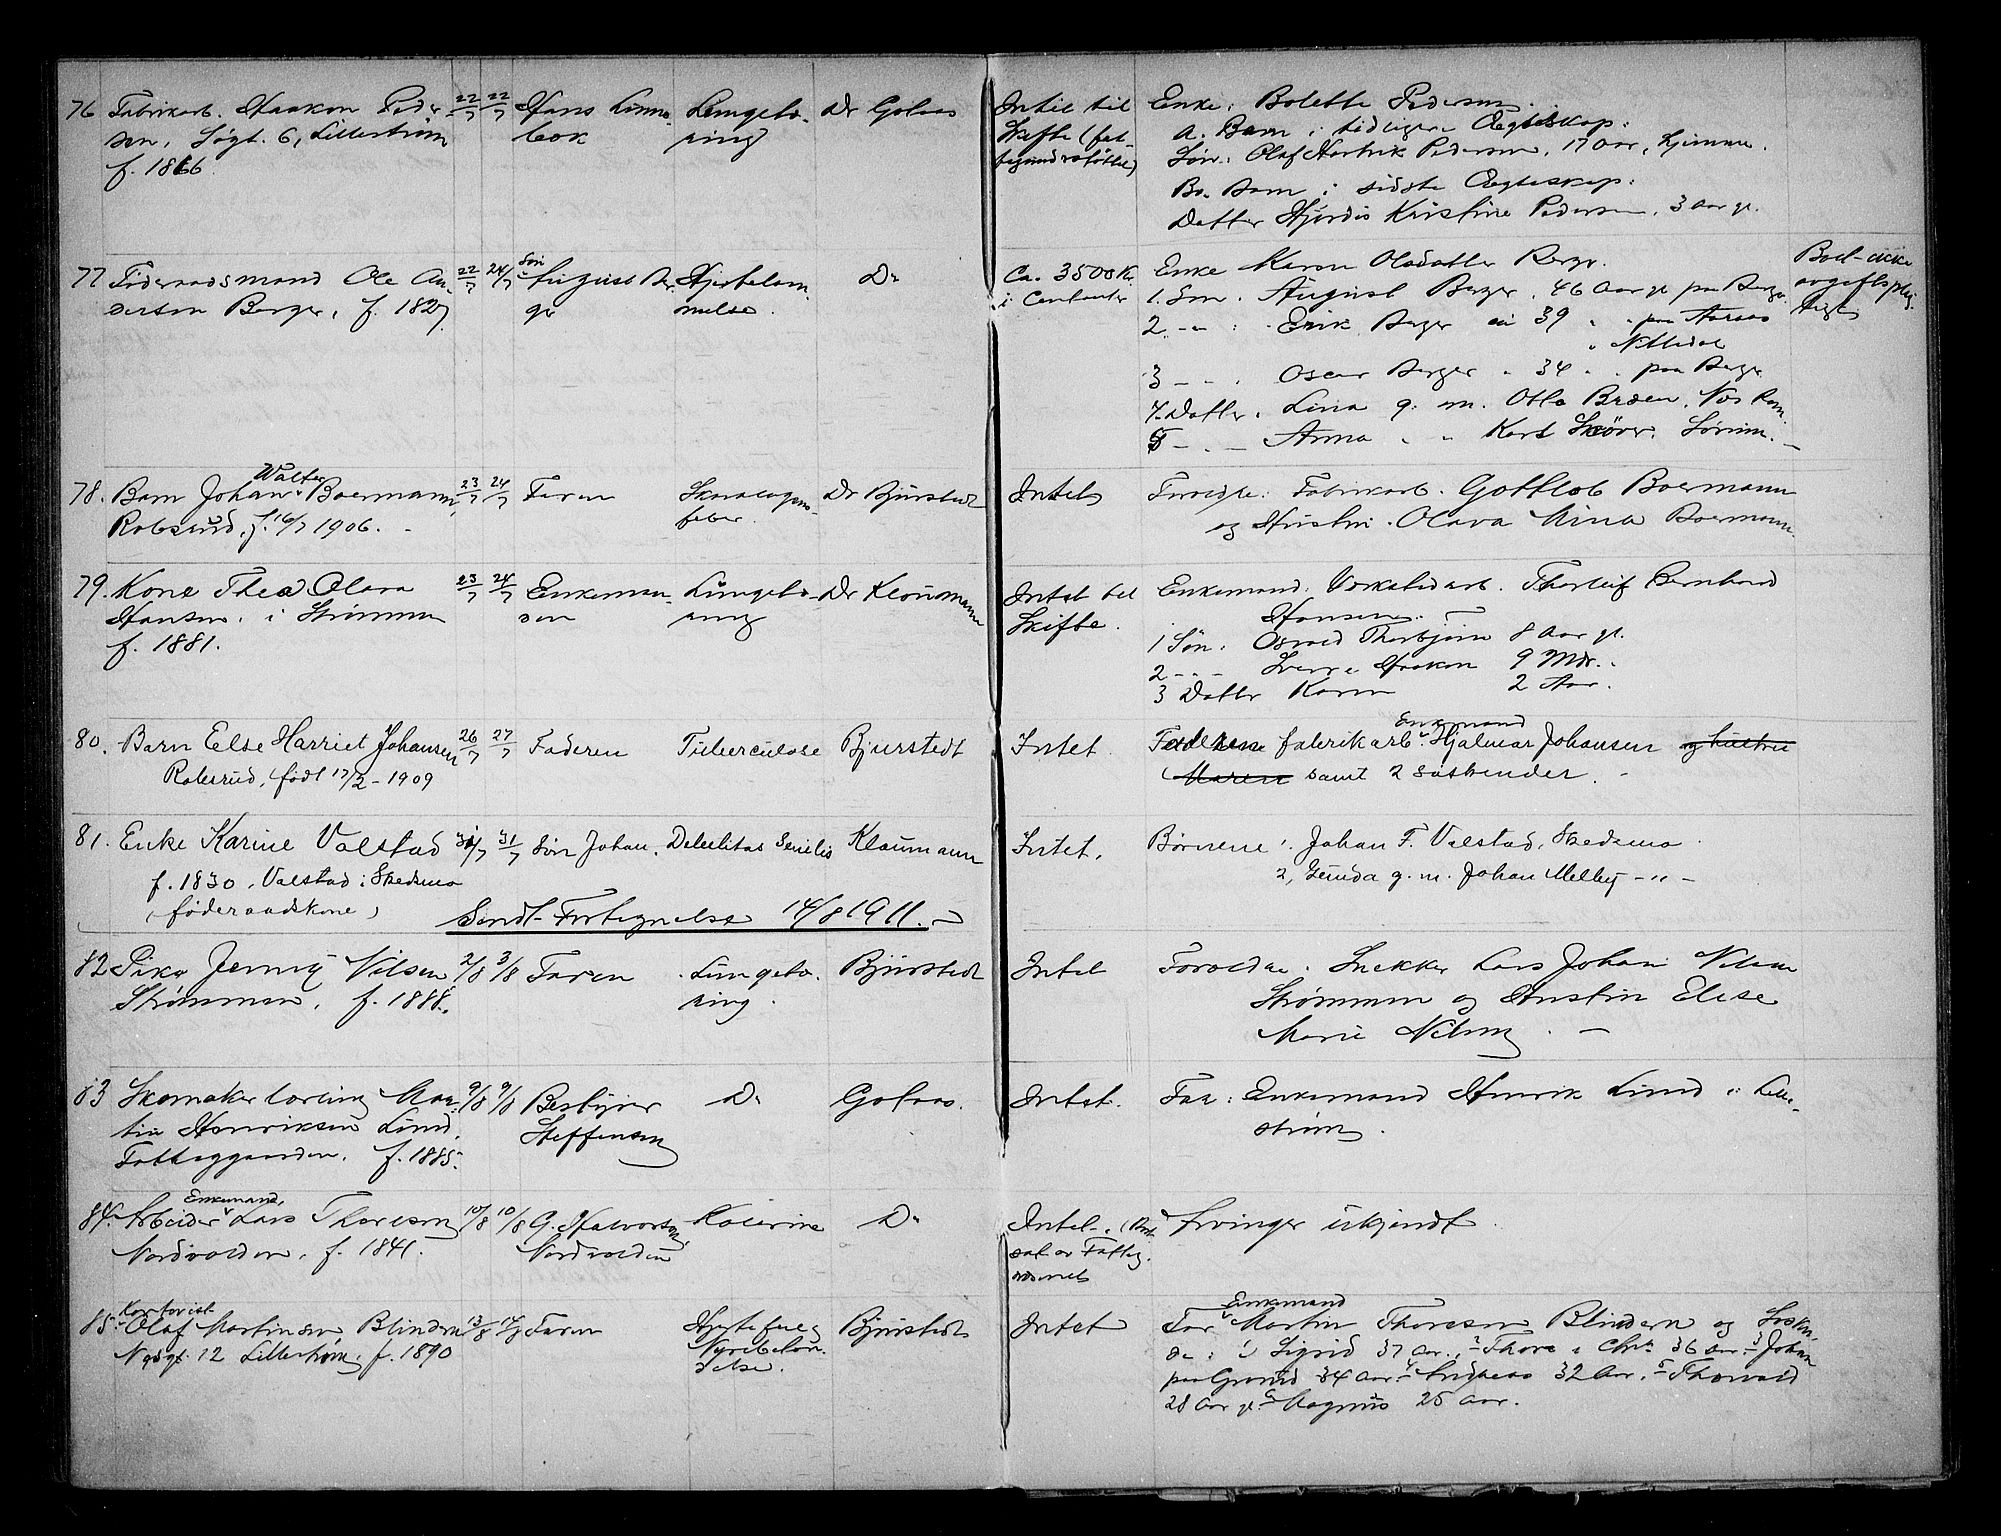 76 Fabrikarb. Haakon Peder-
sen, Søgt. 6, Lillestrøm
f. 1866
22/7 22/7
Hans
Lungebe-
Dr Golaas
Intet til
Skifte (fat-
tigunderstøttet)
Enke: Bolette Pedersen.
a. Barn i tidligere Ægteskap:
Søn: Olaf Henrik Pedersen, 17 aar, hjemme.
B. Barn i sidste Ægteskap:
Datter Hjørdis Kristine Pedersen, 3 aar gl.
77 Føderaadsmand Ole An-
dersen Berger, f. 1827
22/7 24/7
Søn
August Ber-
ger
Hjertelam-
melse.
Do
Ca. 3500 Kr.
i Contanter
Enke Maren Olsdatter Berger.
1. Søn. August Berger, 46 Aar gl. paa Berger
2 - " - : Erik Berger 39 " " paa Aaraas
" Nittedal
3 - " - Oscar Berger " 34 " " paa Berger
4. Datter. Lina g. m. Otto Braaen, Nes Rom.
5 - " - Anna " " Karl Skøver, Sørum. -
Boet ikke
avgiftsplig-
tigt
78. Barn Johan Walter Boermann,
Robsrud, f. 16/7 1906. -
23/7 24/7
Faren
Skarlagens-
feber.
Dr Bjurstedt
Intet
Forældre: Fabrikarb. Gottlob Boermann
og Hustru Olava Mina Boermann.
79. Kone Thea Olava
Hansen, i Strømmen
f. 1881.
23/7 24/7
Enkeman-
den
Lungebe-
Dr Kloumann
Intet til
Skifte.
Enkemand. Verkstedarb. Thorleif Bernhard
Hansen.
1 Søn: Osvald Thorbjørn 8 Aar gl.
2 - " - Sverre Haakon 9 Mdr.
3 Datter Karen 2 Aar.
80. Barn Else Harriet Johansen
Robsrud, født 17/2 - 1909
26/7 27/7
Faderen
Tuberculose
Bjurstedt
Intet.
Enkemand
Faderen fabrikarb. Hjalmar Johansen og hustru
Maren samt 2 søskender. -
81. Enke Karine Valstad
f. 1830, Valstad i Skedsmo
(føderaadskone)
31/7 31/7
Søn Johan.
Debilitas Senilis
Kloumann
Intet.
Børnene 1. Johan F. Valstad, Skedsmo
2, Gunda g. m. Johan Melby - " -
Sendt Fortegnelse 14/8 1911. -
82 Pike Jenny Nilsen,
Strømmen, f. 1888.
2/8 3/8
Faren
Lungebe-
Bjurstedt
Intet
Forældre: Snekker Lars Johan Nilsen
Strømmen og Hustru Elise
Marie Nilsen. -
83 Skomakerlærling Mar-
tin Henriksen Lund,
Fattiggaarden, f. 1885.
9/8 9/8
Bestyrer
Steffensen
Do
Golaas.
Intet.
Far: Enkemand Henrik Lund i Lille-
strøm.
84. Arbeider Enkemand Lars Thoresen
Nordvolden, f. 1841.
10/8 10/8
G. Halvorsen,
Nordvolden
Do
Intet. -
Arvinger ukjendt.
85. Kontorist
Olaf Martinsen Blindern
12 Lillestrøm, f. 1890
13/8 14/8
Faren
Hjertefeil og
Nyrebeten-
delse.
Bjurstedt
Intet
Enkemand
Far Martin Thoresen Blindern og Søsken-
de: 1 Sigrid 37 aar, 2 Thora i Chra 36 aar 3 Johan
paa Grorud 34 aar 4 Andreas 32 aar, 5 Thorvald
28 aar gl. 6 Magnus 25 aar.